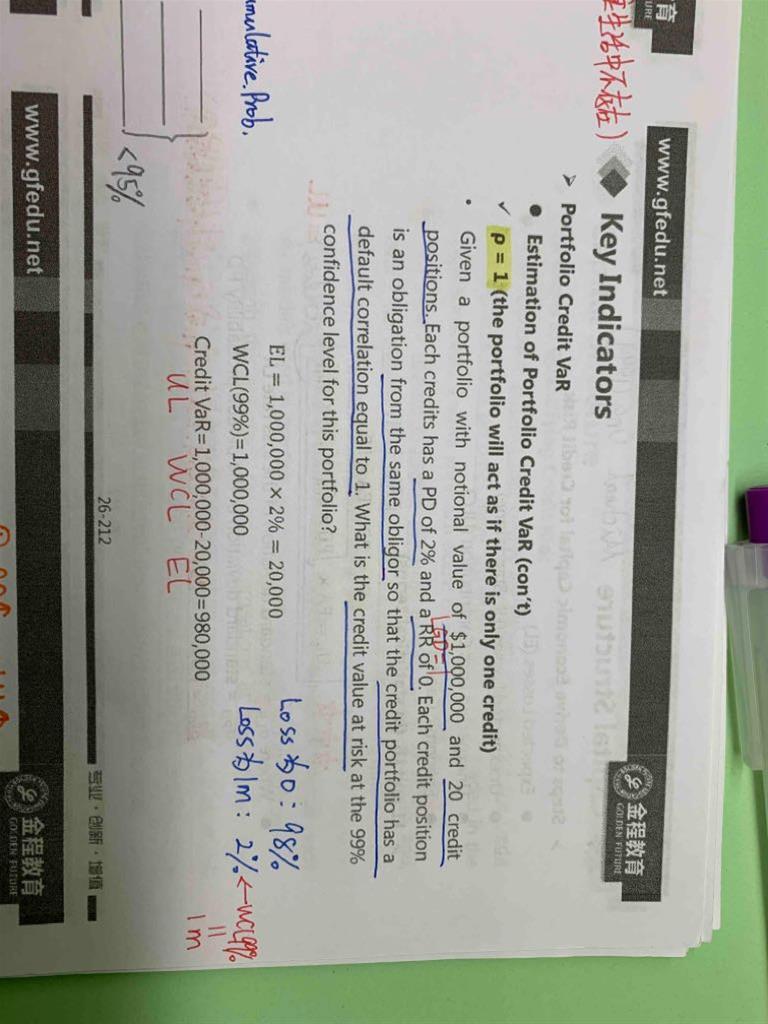 www.gfedu.net
金程教育
GOLDEN FUTURE
Key Indicators
➢ Portfolio Credit VaR
● Estimation of Portfolio Credit VaR (con't)
✓ ρ = 1 (the portfolio will act as if there is only one credit)
• Given a portfolio with notional value of $1,000,000 and 20 credit
LGD=1
positions. Each credits has a PD of 2% and a RR of 0. Each credit position
is an obligation from the same obligor so that the credit portfolio has a
default correlation equal to 1. What is the credit value at risk at the 99%
confidence level for this portfolio?
EL = 1,000,000 × 2% = 20,000
Loss为0: 98%
WCL(99%)=1,000,000
Loss为1m: 2% ←WCL99%
=
1m
Credit VaR=1,000,000-20,000=980,000
UL WCL EL
26-212
专业·创新·增值
www.gfedu.net
金程教育
GOLDEN FUTURE
育
URE
生活中不存在)
mulative.Prob.
<95%